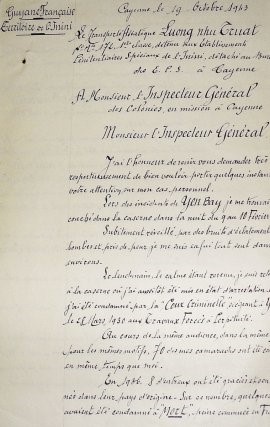 Guyane Française
Territoire de l'Inini
Cayenne, le 19 Octobre 1943
Le Transporté Asiatique Luong nhu Truat
N° 172, 1ère classe, détenu aux Etablissements
Pénitentiaires Spéciaux de l'Inini, détaché au
des E. P. S. à Cayenne
A Monsieur l'Inspecteur Général
des Colonies, en mission à Cayenne
Monsieur l'Inspecteur Général
J'ai l'honneur de venir vous demander très
respectueusement de bien vouloir porter quelques instants
votre attention sur mon cas personnel.
Lors des incidents de Yen Bay, je me trouvais
couché dans la caserne dans la nuit du 9 au 10 Février
Subitement réveillé, par des bruits d'éclatement
bombes et pris de peur je me suis enfui tout seul dans
environs.
Le lendemain, le calme étant revenu, je suis
à la caserne où j'ai aussitôt été mis en état d'arrestation
j'ai été condamné, par la "Cour Criminelle siégeant à
le 28 Mars 1930 aux Travaux Forcés à Perpétuité.
Au cours de la même audience, dans la même
pour les mêmes motifs, 70 de mes camarades ont été
en même temps que moi.
En 1936, 8 d'entr'eux ont été graciés et
nés dans leur pays d'origine. Sur ce nombre, quelques
avaient été condamné à "Mort", peine commuée en